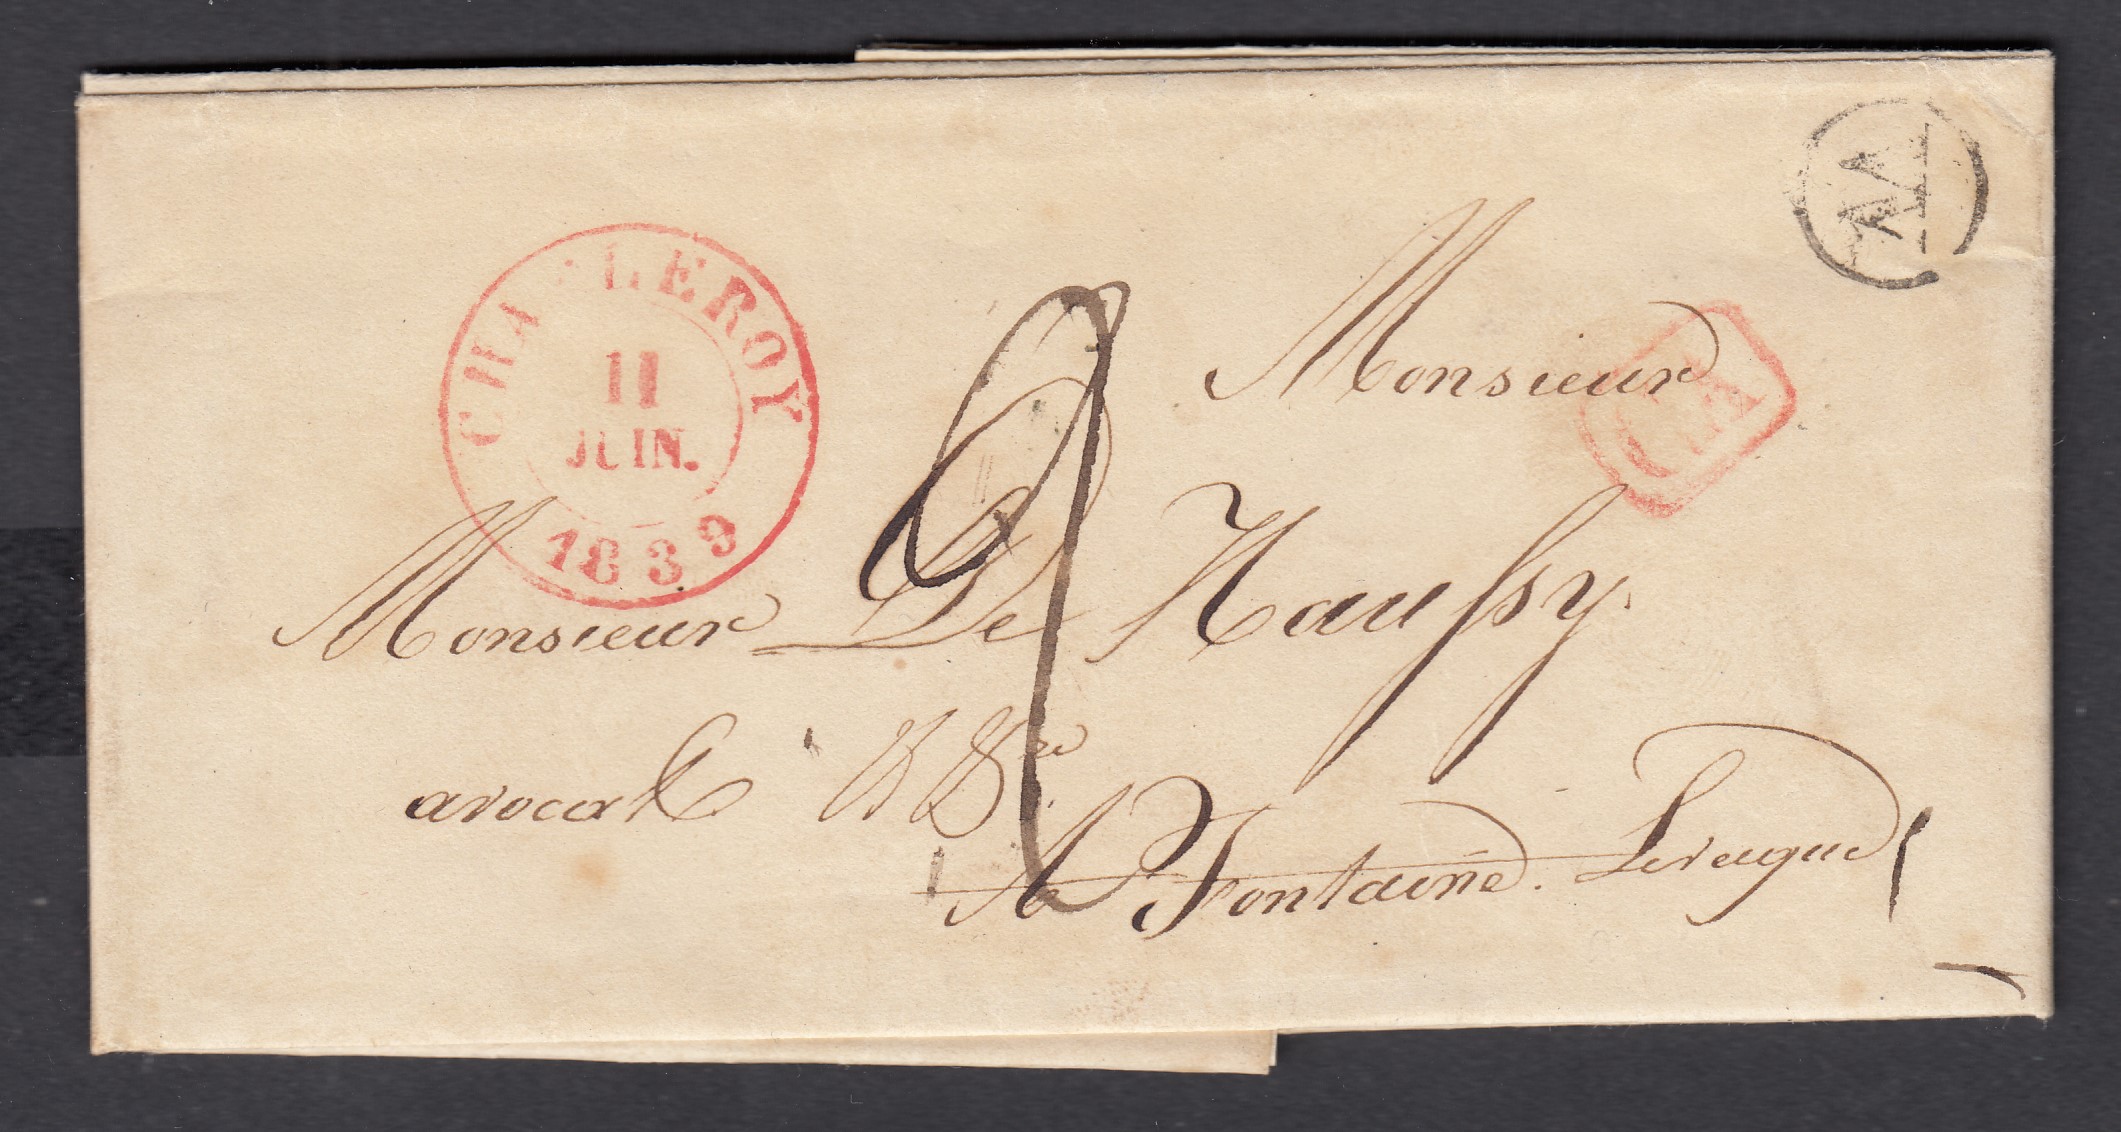 CHARLEROY
11
JUIN.
1839
CA
2
Monsieur
Monsieur De Haussy
avocat
A Fontaine Leveque